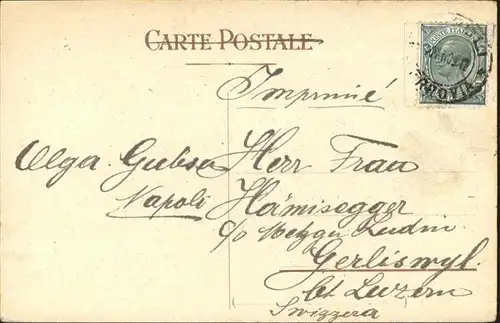 CARTE POSTALE
POSTE ITALI
Imprimé
Olga Gubser
Napoli
Herr Frau
Hämisegger
c/o Metzger
Gerliswyl.
Ct Luzern
Swizzera